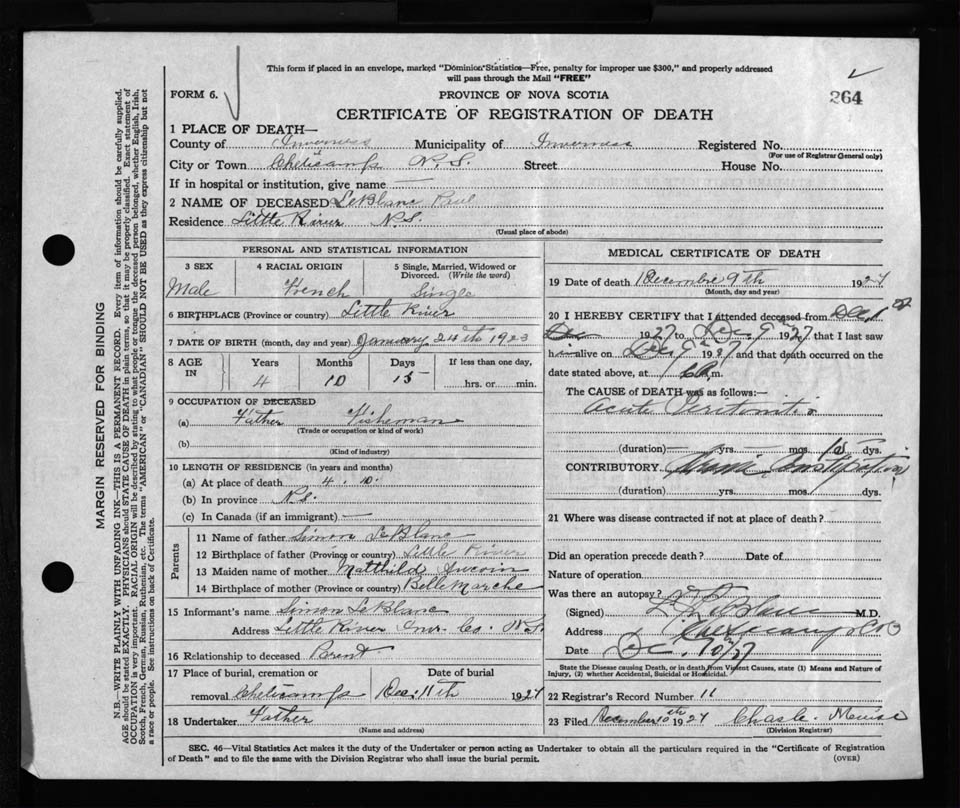 This form if placed in an envelope, marked "Dominion Statistics—Free, penalty for improper use $300," and properly addressed
will pass through the Mail "FREE"
FORM 6.
PROVINCE OF NOVA SCOTIA
264
CERTIFICATE OF REGISTRATION OF DEATH
1 PLACE OF DEATH—
County of Inverness Municipality of Inverness Registered No.
(For use of Registrar General only)
City or Town Cheticamp N.S. Street House No.
If in hospital or institution, give name —
2 NAME OF DECEASED LeBlanc Paul
Residence Little River N.S.
(Usual place of abode)
PERSONAL AND STATISTICAL INFORMATION
3 SEX
Male
4 RACIAL ORIGIN
French
5 Single, Married, Widowed or
Divorced. (Write the word)
Single
6 BIRTHPLACE (Province or country) Little River
7 DATE OF BIRTH (month, day and year) January 24th 1923
8 AGE IN
Years
4
Months
10
Days
15
If less than one day,
hrs. or min.
9 OCCUPATION OF DECEASED
(a) Father Fisheman
(Trade or occupation or kind of work)
(b)
(Kind of industry)
10 LENGTH OF RESIDENCE (in years and months)
(a) At place of death 4. 10.
(b) In province N.S.
(c) In Canada (if an immigrant) —
Parents
11 Name of father Simon LeBlanc
12 Birthplace of father (Province or country) Little River
13 Maiden name of mother Matthilde Aucoin
14 Birthplace of mother (Province or country) Belle Marche
15 Informant's name Simon LeBlanc
Address Little River Inv. Co. N.S.
16 Relationship to deceased Parent
17 Place of burial, cremation or
removal Cheticamp
Date of burial
Dec. 11th 1927
18 Undertaker Father
(Name and address)
MEDICAL CERTIFICATE OF DEATH
19 Date of death Decembre 9th 1927
(Month, day and year)
20 I HEREBY CERTIFY that I attended deceased from Dec 1
1927 to Dec 9th 1927 that I last saw
him alive on Dec 9 1927 and that death occurred on the
date stated above, at m.
The CAUSE OF DEATH was as follows:
Acute Peritonitis
(duration) yrs. mos. 10 dys.
CONTRIBUTORY Constipation
(duration) yrs. mos. dys.
21 Where was disease contracted if not at place of death?
Did an operation precede death? Date of
Nature of operation
Was there an autopsy?
(Signed) LeBlanc M.D.
Address Cheticamp
Date Dec. 10/27
State the Disease causing Death, or in death from Violent Causes, state (1) Means and Nature of
Injury, (2) whether Accidental, Suicidal or Homicidal.
22 Registrar's Record Number 11
23 Filed December 10th 1927
(Division Registrar)
SEC. 46—Vital Statistics Act makes it the duty of the Undertaker or person acting as Undertaker to obtain all the particulars required in the "Certificate of Registration
of Death" and to file the same with the Division Registrar who shall issue the burial permit.
(OVER)
MARGIN RESERVED FOR BINDING
N.B.—WRITE PLAINLY WITH UNFADING INK—THIS IS A PERMANENT RECORD. Every item of information should be carefully supplied.
AGE should be stated EXACTLY. PHYSICIANS should STATE CAUSE OF DEATH in plain terms, so that it may be properly classified. Exact statement of
OCCUPATION is very important. RACIAL ORIGIN will be described by stating to what people or tongue the deceased person belonged, whether English, Irish,
Scotch, French, German, Russian, Ruthenian, etc. The terms "AMERICAN" or "CANADIAN" SHOULD NOT BE USED as they express citizenship but not
a race or people. See instructions on back of Certificate.